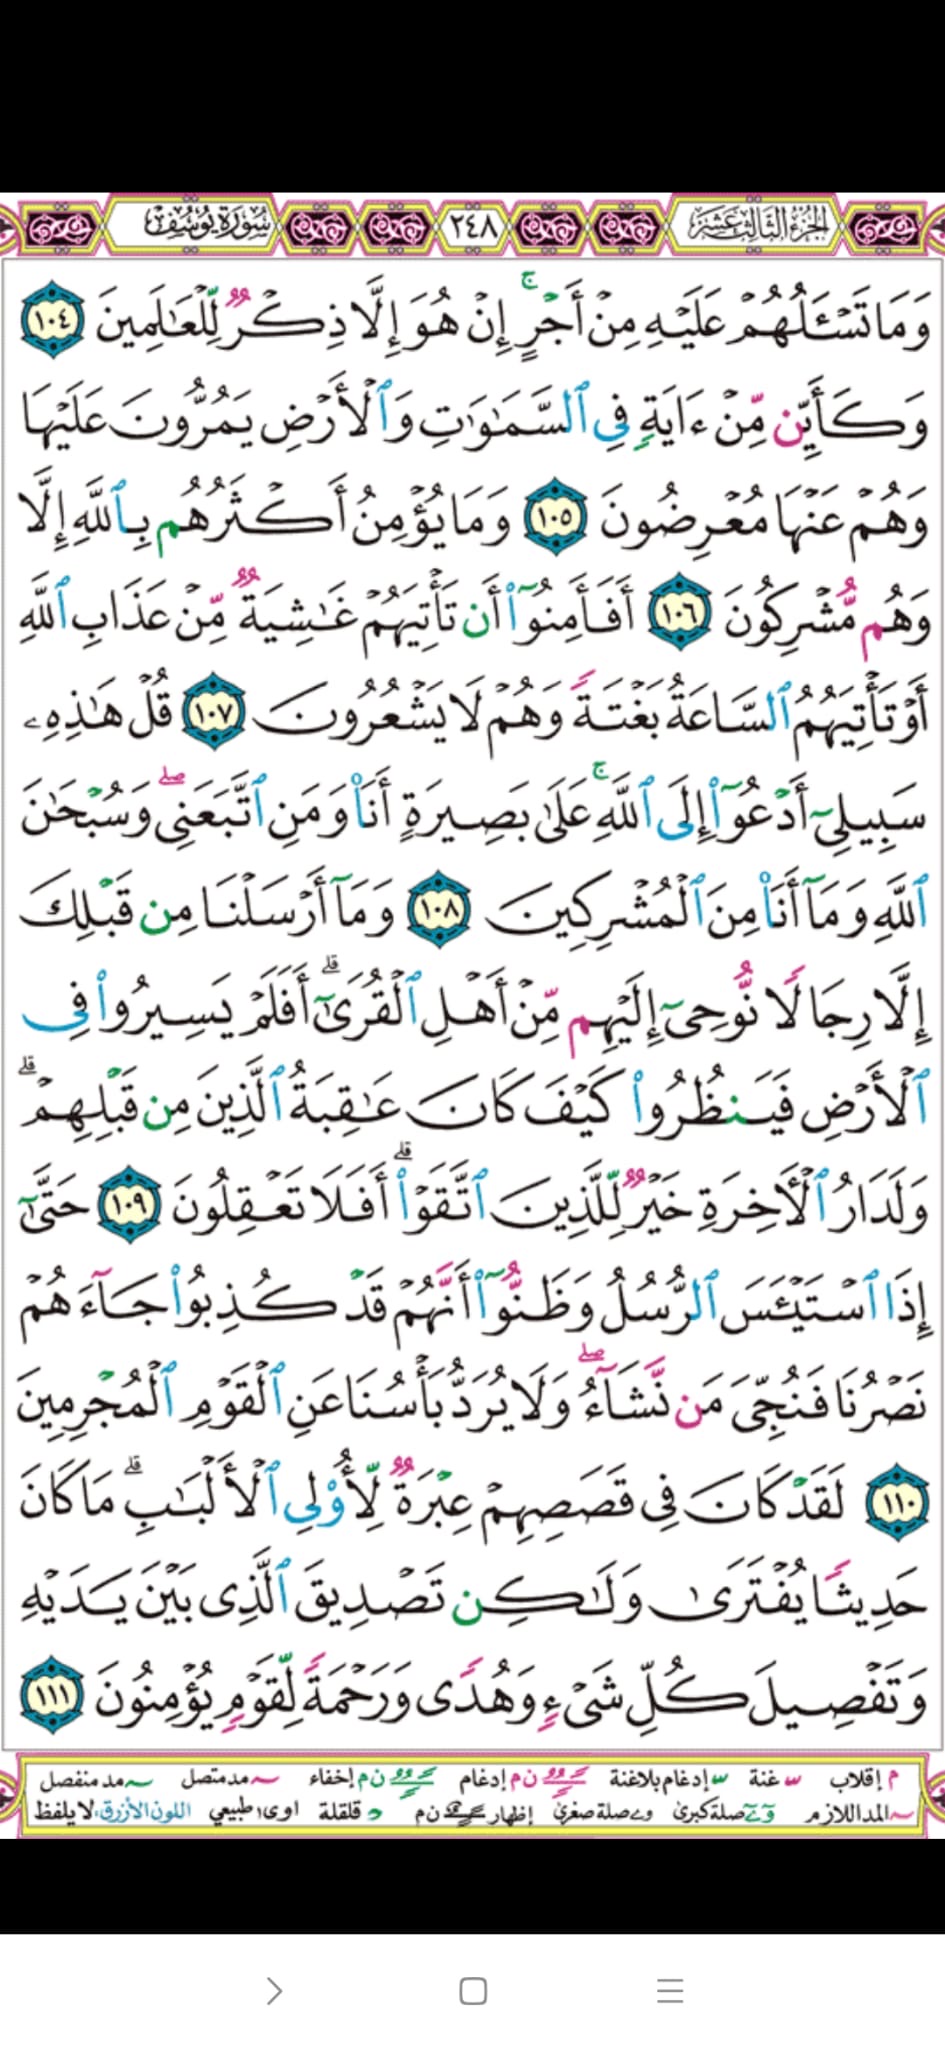 الجزء الثالث عشر ٢٤٨ سورة يوسف
وَمَا تَسْـَٔلُهُمْ عَلَيْهِ مِنْ أَجْرٍ ۚ إِنْ هُوَ إِلَّا ذِكْرٌ لِّلْعَـٰلَمِينَ ١٠٤
وَكَأَيِّن مِّنْ ءَايَةٍ فِى ٱلسَّمَـٰوَٰتِ وَٱلْأَرْضِ يَمُرُّونَ عَلَيْهَا
وَهُمْ عَنْهَا مُعْرِضُونَ ١٠٥ وَمَا يُؤْمِنُ أَكْثَرُهُم بِٱللَّهِ إِلَّا
وَهُم مُّشْرِكُونَ ١٠٦ أَفَأَمِنُوٓا۟ أَن تَأْتِيَهُمْ غَـٰشِيَةٌ مِّنْ عَذَابِ ٱللَّهِ
أَوْ تَأْتِيَهُمُ ٱلسَّاعَةُ بَغْتَةً وَهُمْ لَا يَشْعُرُونَ ١٠٧ قُلْ هَـٰذِهِۦ
سَبِيلِىٓ أَدْعُوٓا۟ إِلَى ٱللَّهِ ۚ عَلَىٰ بَصِيرَةٍ أَنَا۠ وَمَنِ ٱتَّبَعَنِى ۖ وَسُبْحَـٰنَ
ٱللَّهِ وَمَآ أَنَا۠ مِنَ ٱلْمُشْرِكِينَ ١٠٨ وَمَآ أَرْسَلْنَا مِن قَبْلِكَ
إِلَّا رِجَالًا نُّوحِىٓ إِلَيْهِم مِّنْ أَهْلِ ٱلْقُرَىٰٓ ۗ أَفَلَمْ يَسِيرُوا۟ فِى
ٱلْأَرْضِ فَيَنظُرُوا۟ كَيْفَ كَانَ عَـٰقِبَةُ ٱلَّذِينَ مِن قَبْلِهِمْ ۗ
وَلَدَارُ ٱلْـَٔاخِرَةِ خَيْرٌ لِّلَّذِينَ ٱتَّقَوْا۟ ۗ أَفَلَا تَعْقِلُونَ ١٠٩ حَتَّىٰٓ
إِذَا ٱسْتَيْـَٔسَ ٱلرُّسُلُ وَظَنُّوٓا۟ أَنَّهُمْ قَدْ كُذِبُوا۟ جَآءَهُمْ
نَصْرُنَا فَنُجِّىَ مَن نَّشَآءُ ۖ وَلَا يُرَدُّ بَأْسُنَا عَنِ ٱلْقَوْمِ ٱلْمُجْرِمِينَ
١١٠ لَقَدْ كَانَ فِى قَصَصِهِمْ عِبْرَةٌ لِّأُو۟لِى ٱلْأَلْبَـٰبِ ۗ مَا كَانَ
حَدِيثًا يُفْتَرَىٰ وَلَـٰكِن تَصْدِيقَ ٱلَّذِى بَيْنَ يَدَيْهِ
وَتَفْصِيلَ كُلِّ شَىْءٍ وَهُدًى وَرَحْمَةً لِّقَوْمٍ يُؤْمِنُونَ ١١١
م إقلاب غنة إدغام بلاغنة ن م إدغام ن م إخفاء مد متصل مد منفصل
المد اللازم صلة كبرى وے صلة صغرى إظهار ن م قلقلة اوى طبيعي اللون الأزرق: لا يلفظ